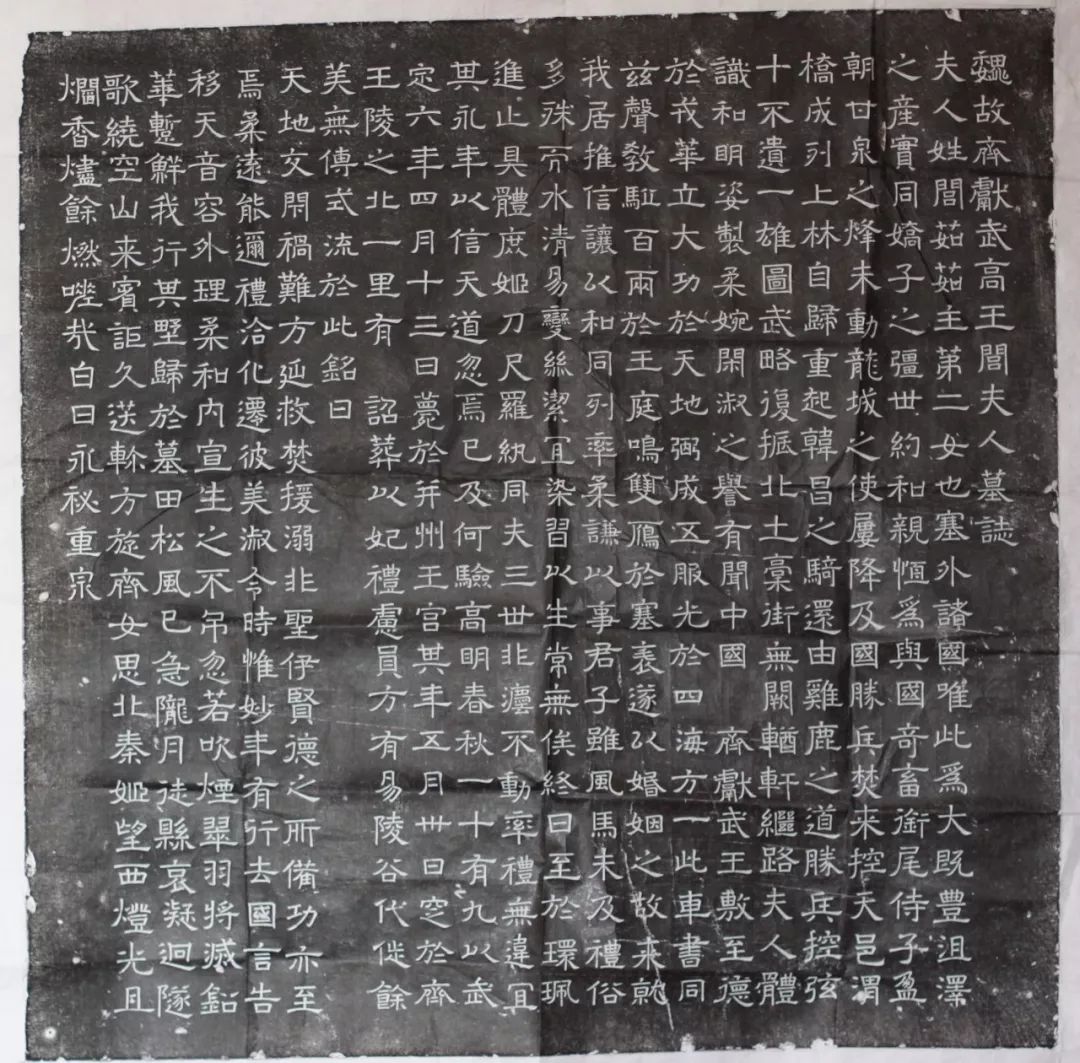 魏故齊獻武高王閭夫人墓誌
夫人姓閭茹茹主第二女也塞外諸國唯此為大既豐沮澤
之產實同嬌子之彊世約和親恒為與國奇畜銜尾侍子盈
朝甘泉之烽未動龍城之使屢降及國勝兵焚来控天邑渭
橋成列上林自歸重起韓昌之騎還由雞鹿之道勝兵控弦
十不遺一雄圖武略復振北土槀街無闕輶軒繼路夫人體
識和明姿製柔婉閑淑之譽有聞中國 齊獻武王敷至德
於戎華立大功於天地弼成五服光於四海方一此車書同
茲聲敎駈百兩於王庭鳴雙鴈於塞表遂以婚姻之故来就
我居推信讓以和同列率柔謙以事君子雖風馬未及禮俗
多殊而水清易變絲潔宜染習以生常無俟終日至於環珮
進止具體庶姬刀尺羅紈同夫三世北瀍不動率禮無違宜
其永年以信天道忽焉已及何驗高明春秋一十有九以武
定六年四月十三日薨於并州王宮其年五月卅日窆於齊
王陵之北一里有 詔葬以妃禮慮員方有易陵谷代徙餘
美無傳式流於此銘曰
天地交閇禍難方延救焚援溺非聖伊賢德之所備功亦至
焉柔遠能邇禮洽化遷彼美淑令時惟妙年有行去國言告
移天音容外理柔和內宣生之不弔忽若吹煙翠羽將滅鈆
華蹔鮮我行其野歸於墓田松風已急隴月徒縣哀凝迴隧
歌繞空山来賓詎久送軨方旋齊女思北秦姬望西燈光且
爛香燼餘燃嗟哉白日永祕重泉